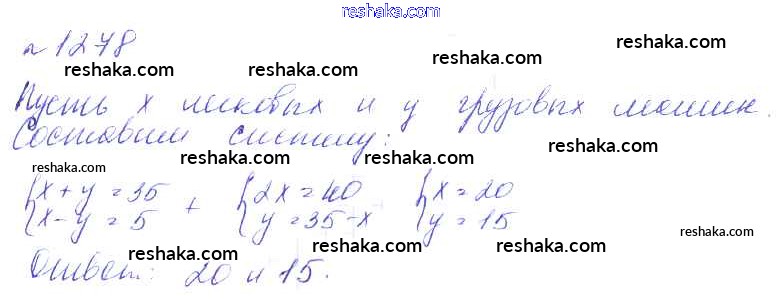 www.reshaka.com
№ 1278
reshaka.com reshaka.com reshaka.com reshaka.com
Пусть x легковых и y грузовых машин.
Составим систему:
reshaka.com reshaka.com reshaka.com
reshaka.com reshaka.com reshaka.com
{x+y=35 + {2x=40 {x=20
{x-y=5 {y=35-x {y=15
reshaka.com
reshaka.com reshaka.com reshaka.com
Ответ: 20 и 15.
reshaka.com